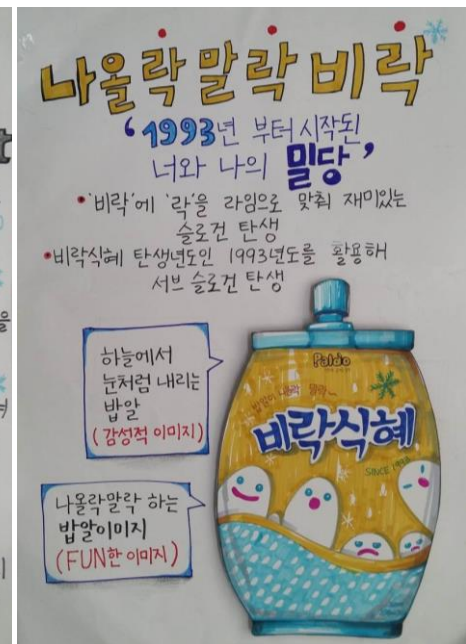 나올락 말락 비락
'1993년 부터 시작된
너와 나의 밀당'
• '비락'에 '락'을 라임으로 맞춰 재미있는
슬로건 탄생
• 비락식혜 탄생년도인 1993년도를 활용해
서브 슬로건 탄생
하늘에서
눈처럼 내리는
밥알
(감성적 이미지)
나올락말락 하는
밥알이미지
(FUN한 이미지)
Paldo
밥알이 나올락 말락
비락식혜
SINCE 1993
t
을